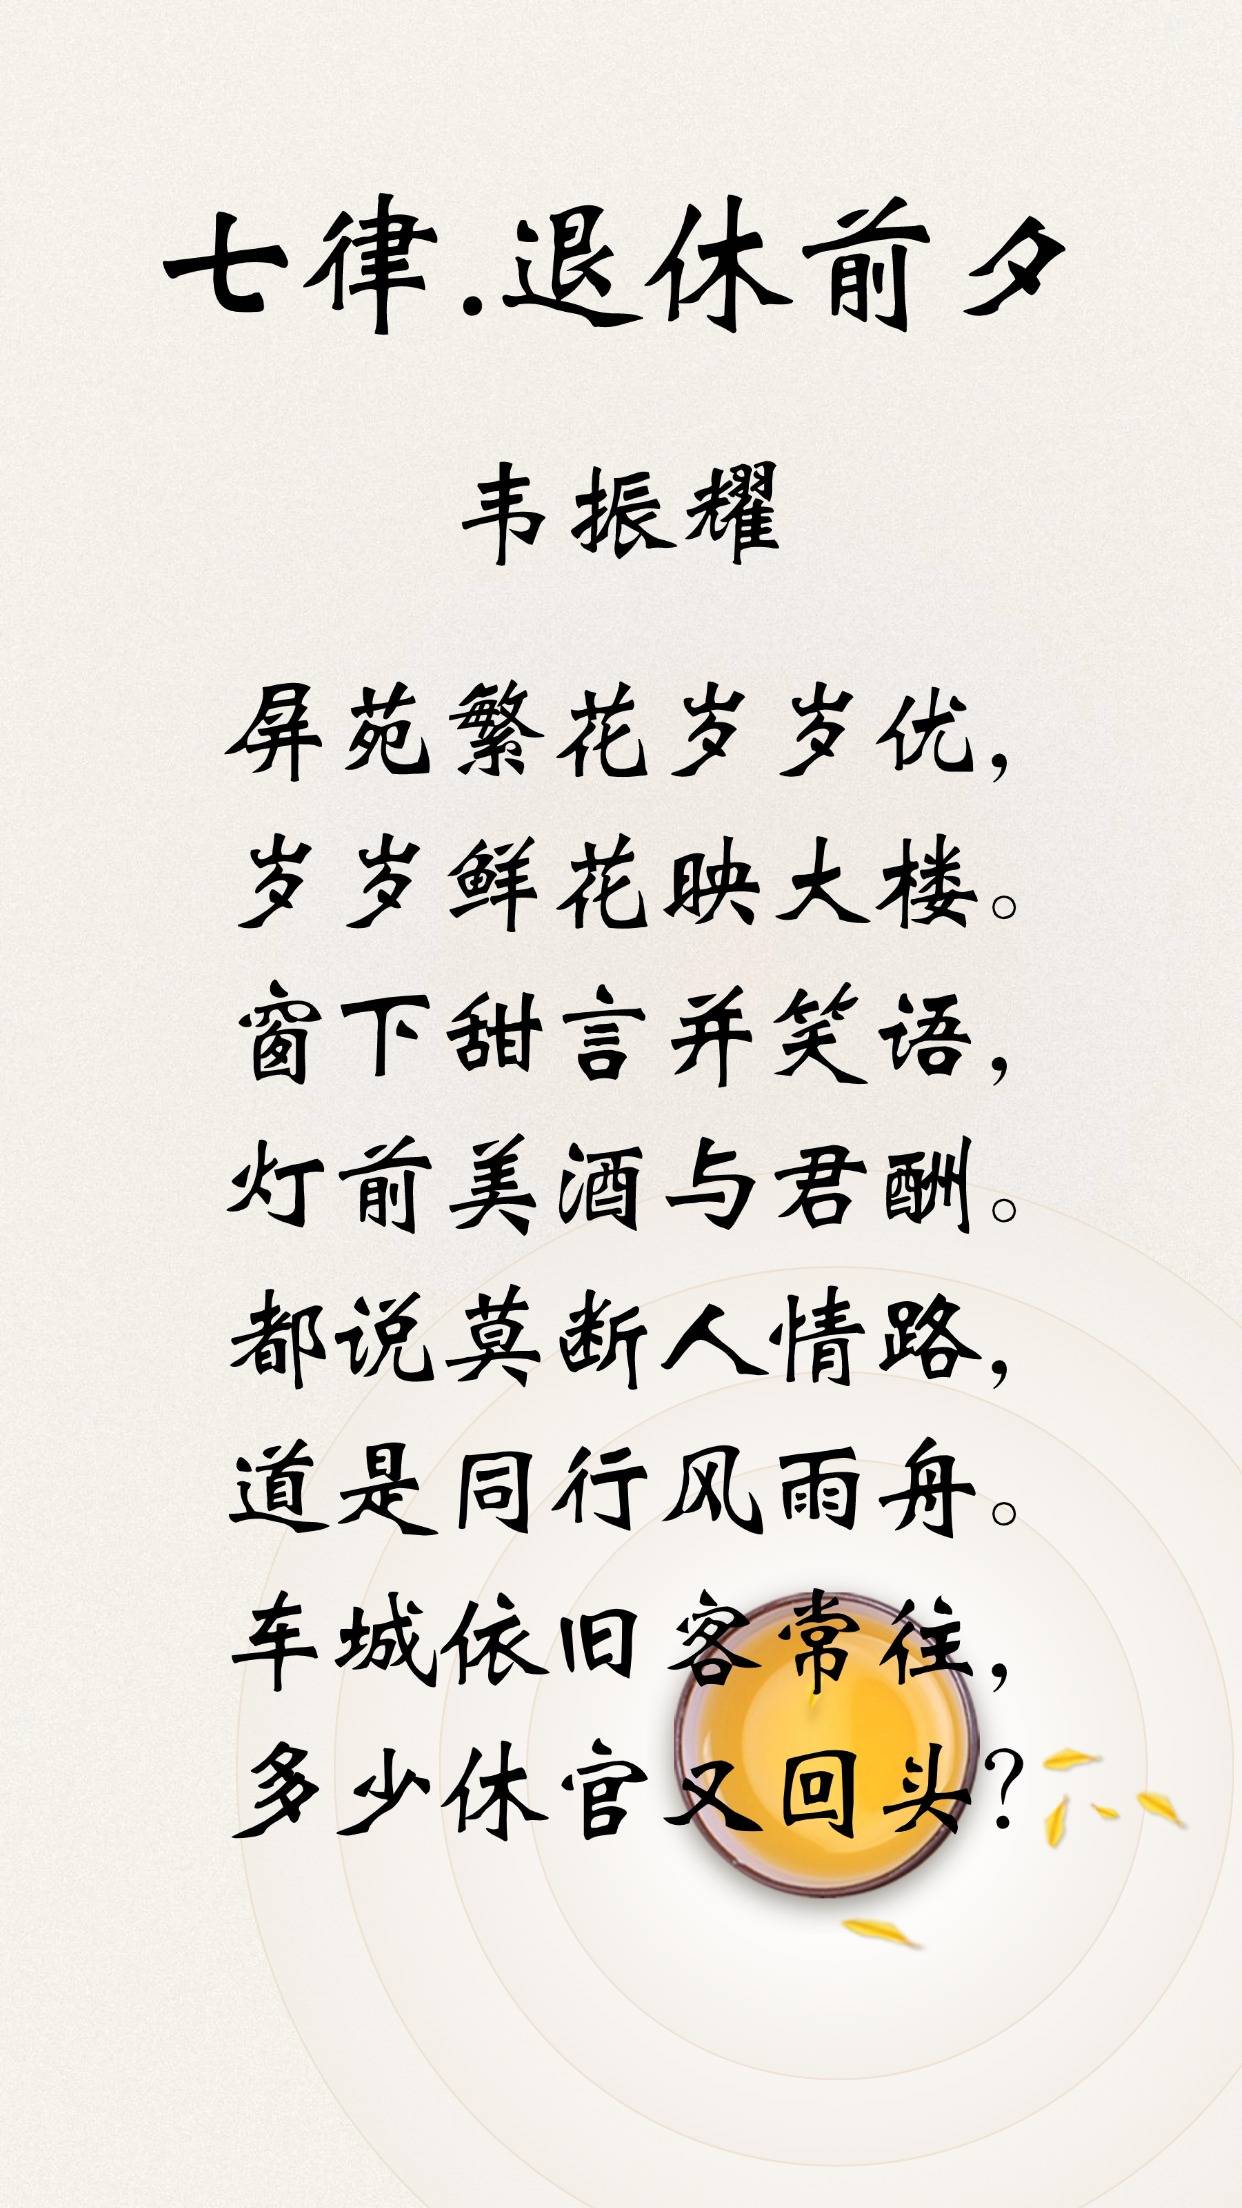 七律.退休前夕
韦振耀
屏苑繁花岁岁优，
岁岁鲜花映大楼。
窗下甜言并笑语，
灯前美酒与君酬。
都说莫断人情路，
道是同行风雨舟。
车城依旧客常往，
多少休官又回头？